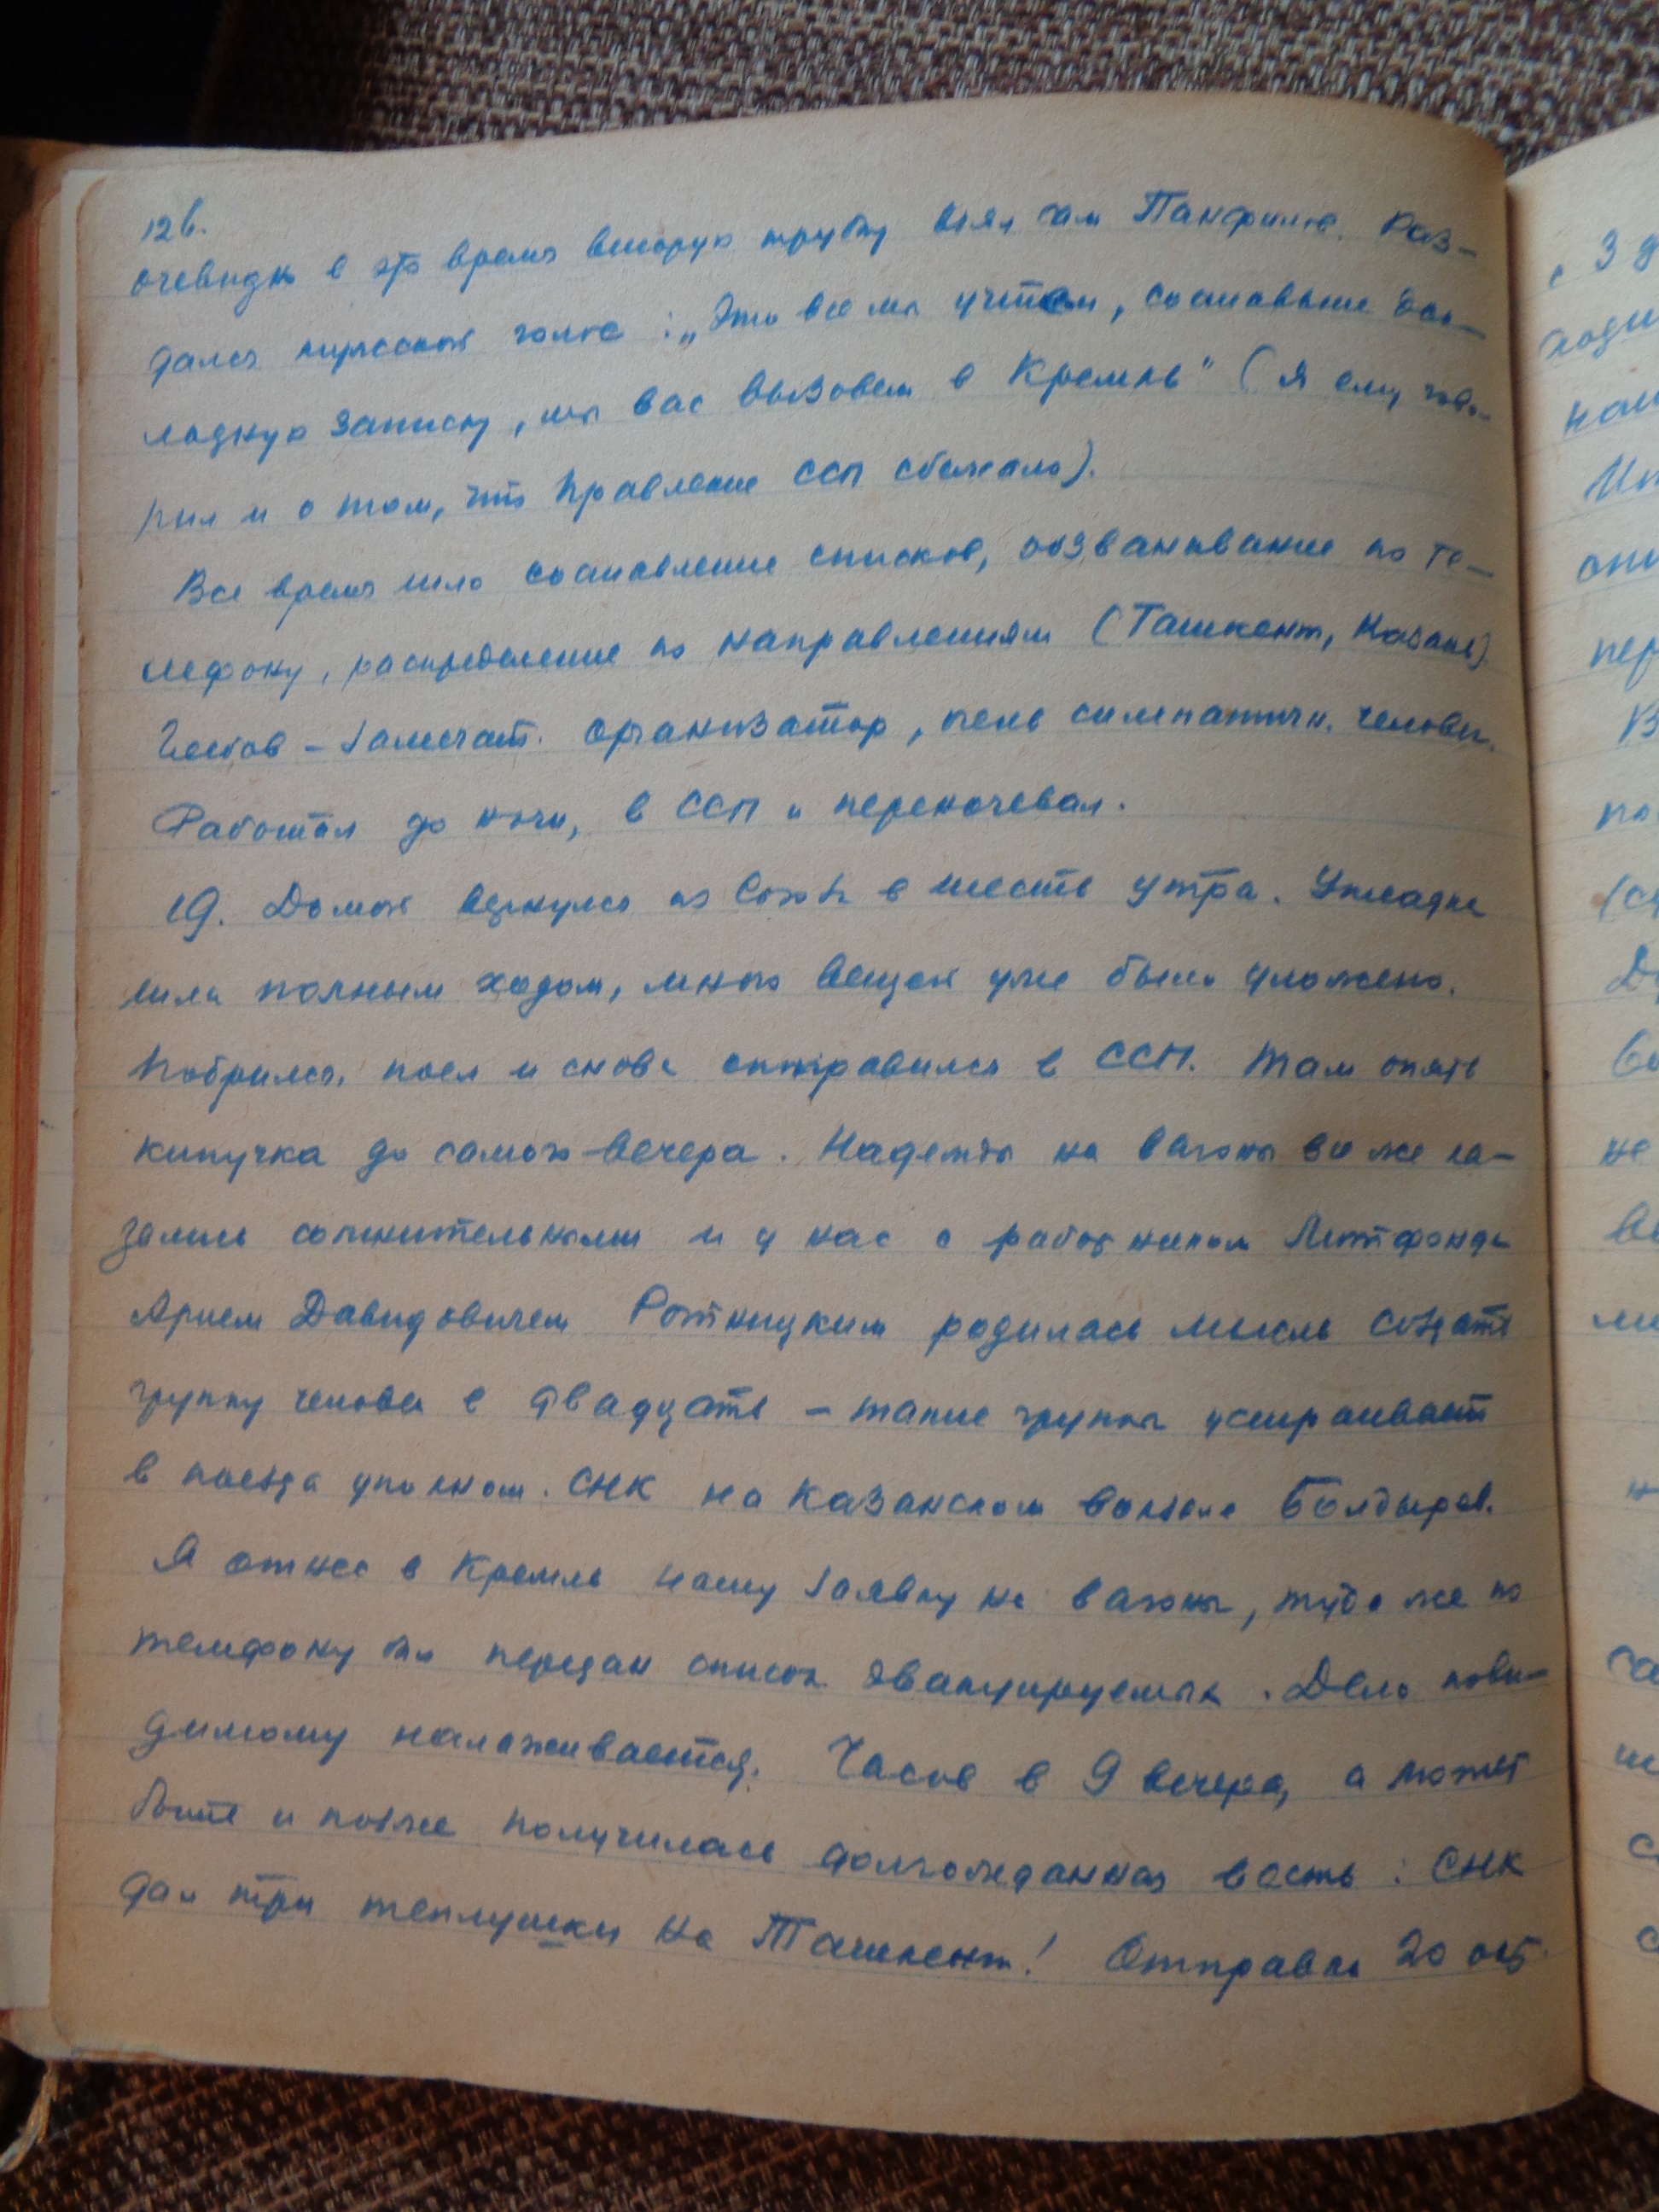 12в.
очевидно в это время вторую трубку взял сам Панфилов. Раз-
дался мужской голос: „Это все мы учтем, составьте док-
ладную записку, мы вас вызовем в Кремль" (я ему гово-
рил и о том, что Правление ССП сбежало).
Все время шло составление списков, обзванивание по те-
лефону, распределение по направлениям (Ташкент, Казань)
– замечат. организатор, очень симпатичн. человек.
Работал до ночи, в ССП и переночевал.
19. Домой вернулся из Союза в шесть утра. Укладка
шла полным ходом, много вещей уже было уложено.
Побрился, поел и снова отправился в ССП. Там опять
кипучка до самого вечера. Надежды на вагоны все же ка-
зались сомнительными и у нас с работником Литфонда
Арием Давидовичем Ротницким родилась мысль создать
группу человек в двадцать – такие группы устраивает
в поезда уполном. СНК на Казанском вокзале Болдырев.
Я отнес в Кремль нашу заявку на вагоны, туда же по
телефону был передан список эвакуируемых. Дело пови-
димому налаживается. Часов в 9 вечера, а может
быть и позже получилась долгожданная весть: СНК
дал три теплушки на Ташкент! Отправка 20 окт.